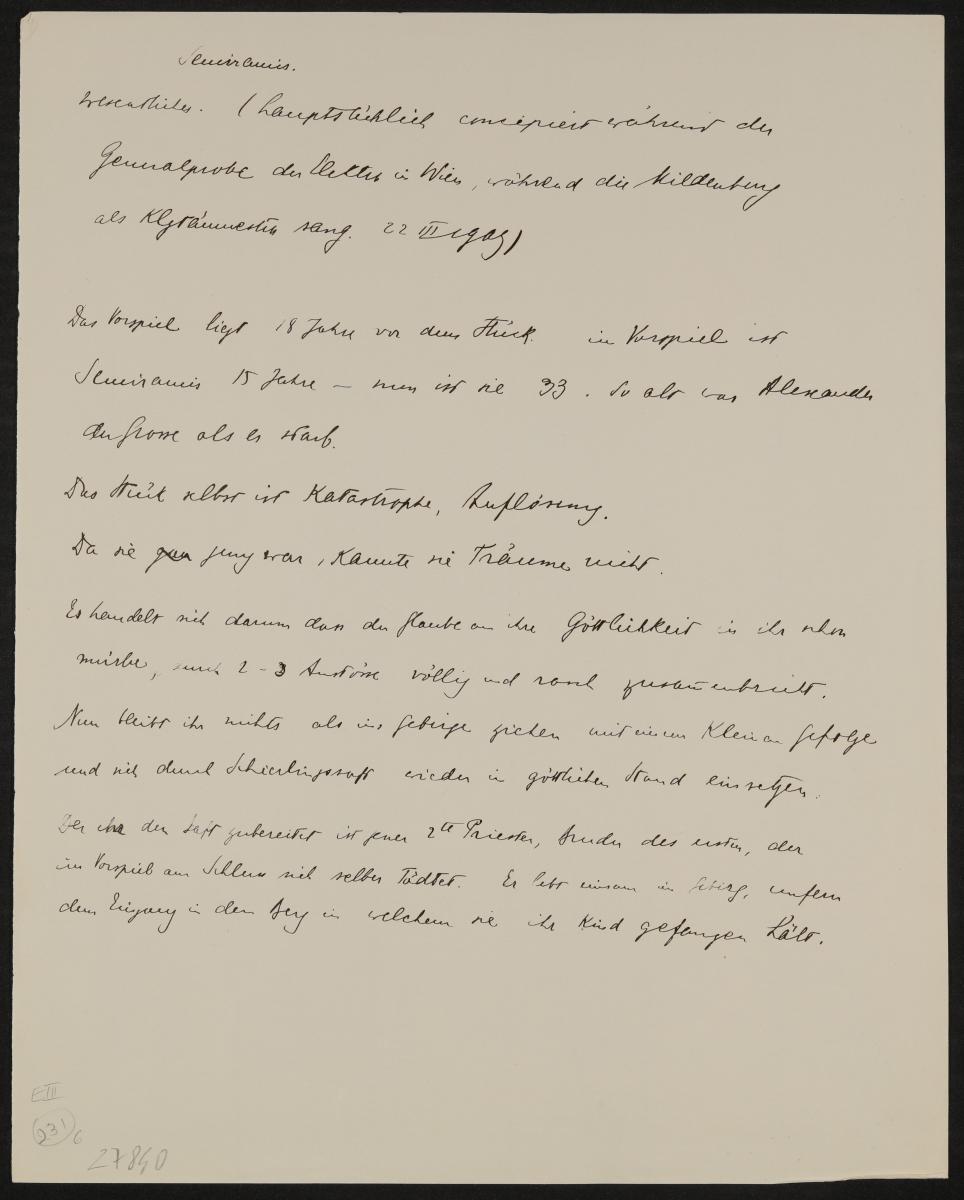 Semiramis.
Wesentliches. (hauptsächlich concipiert während der
Generalprobe der Elektra in Wien, während die Mildenburg
als Klytämnestra sang. 22 III 1909)
Das Vorspiel ligt 18 Jahre vor dem Stück. im Vorspiel ist
Semiramis 15 Jahre – nun ist sie 33. So alt war Alexander
der Grosse als er starb.
Das Stück selbst ist Katastrophe, Auflösung.
Da sie jung war, kannte sie Träume nicht.
Es handelt sich darum dass der Glaube an ihre Göttlichkeit in ihr schon
mürbe, durch 2–3 Anstösse völlig und rasch zusammenbricht.
Nun bleibt ihr nichts als ins Gebirge ziehen mit einem kleinen Gefolge
und sich durch Schierlingssaft wieder in göttlichen Stand einsetzen.
Der ihr den Saft zubereitet ist jener 2te Priester, Bruder des ersten, der
im Vorspiel am Schluss sich selber tödtet. Er lebt einsam im Gebirg, unfern
dem Eingang in den Berg in welchem sie ihr Kind gefangen hält.
E III
231 6
27840